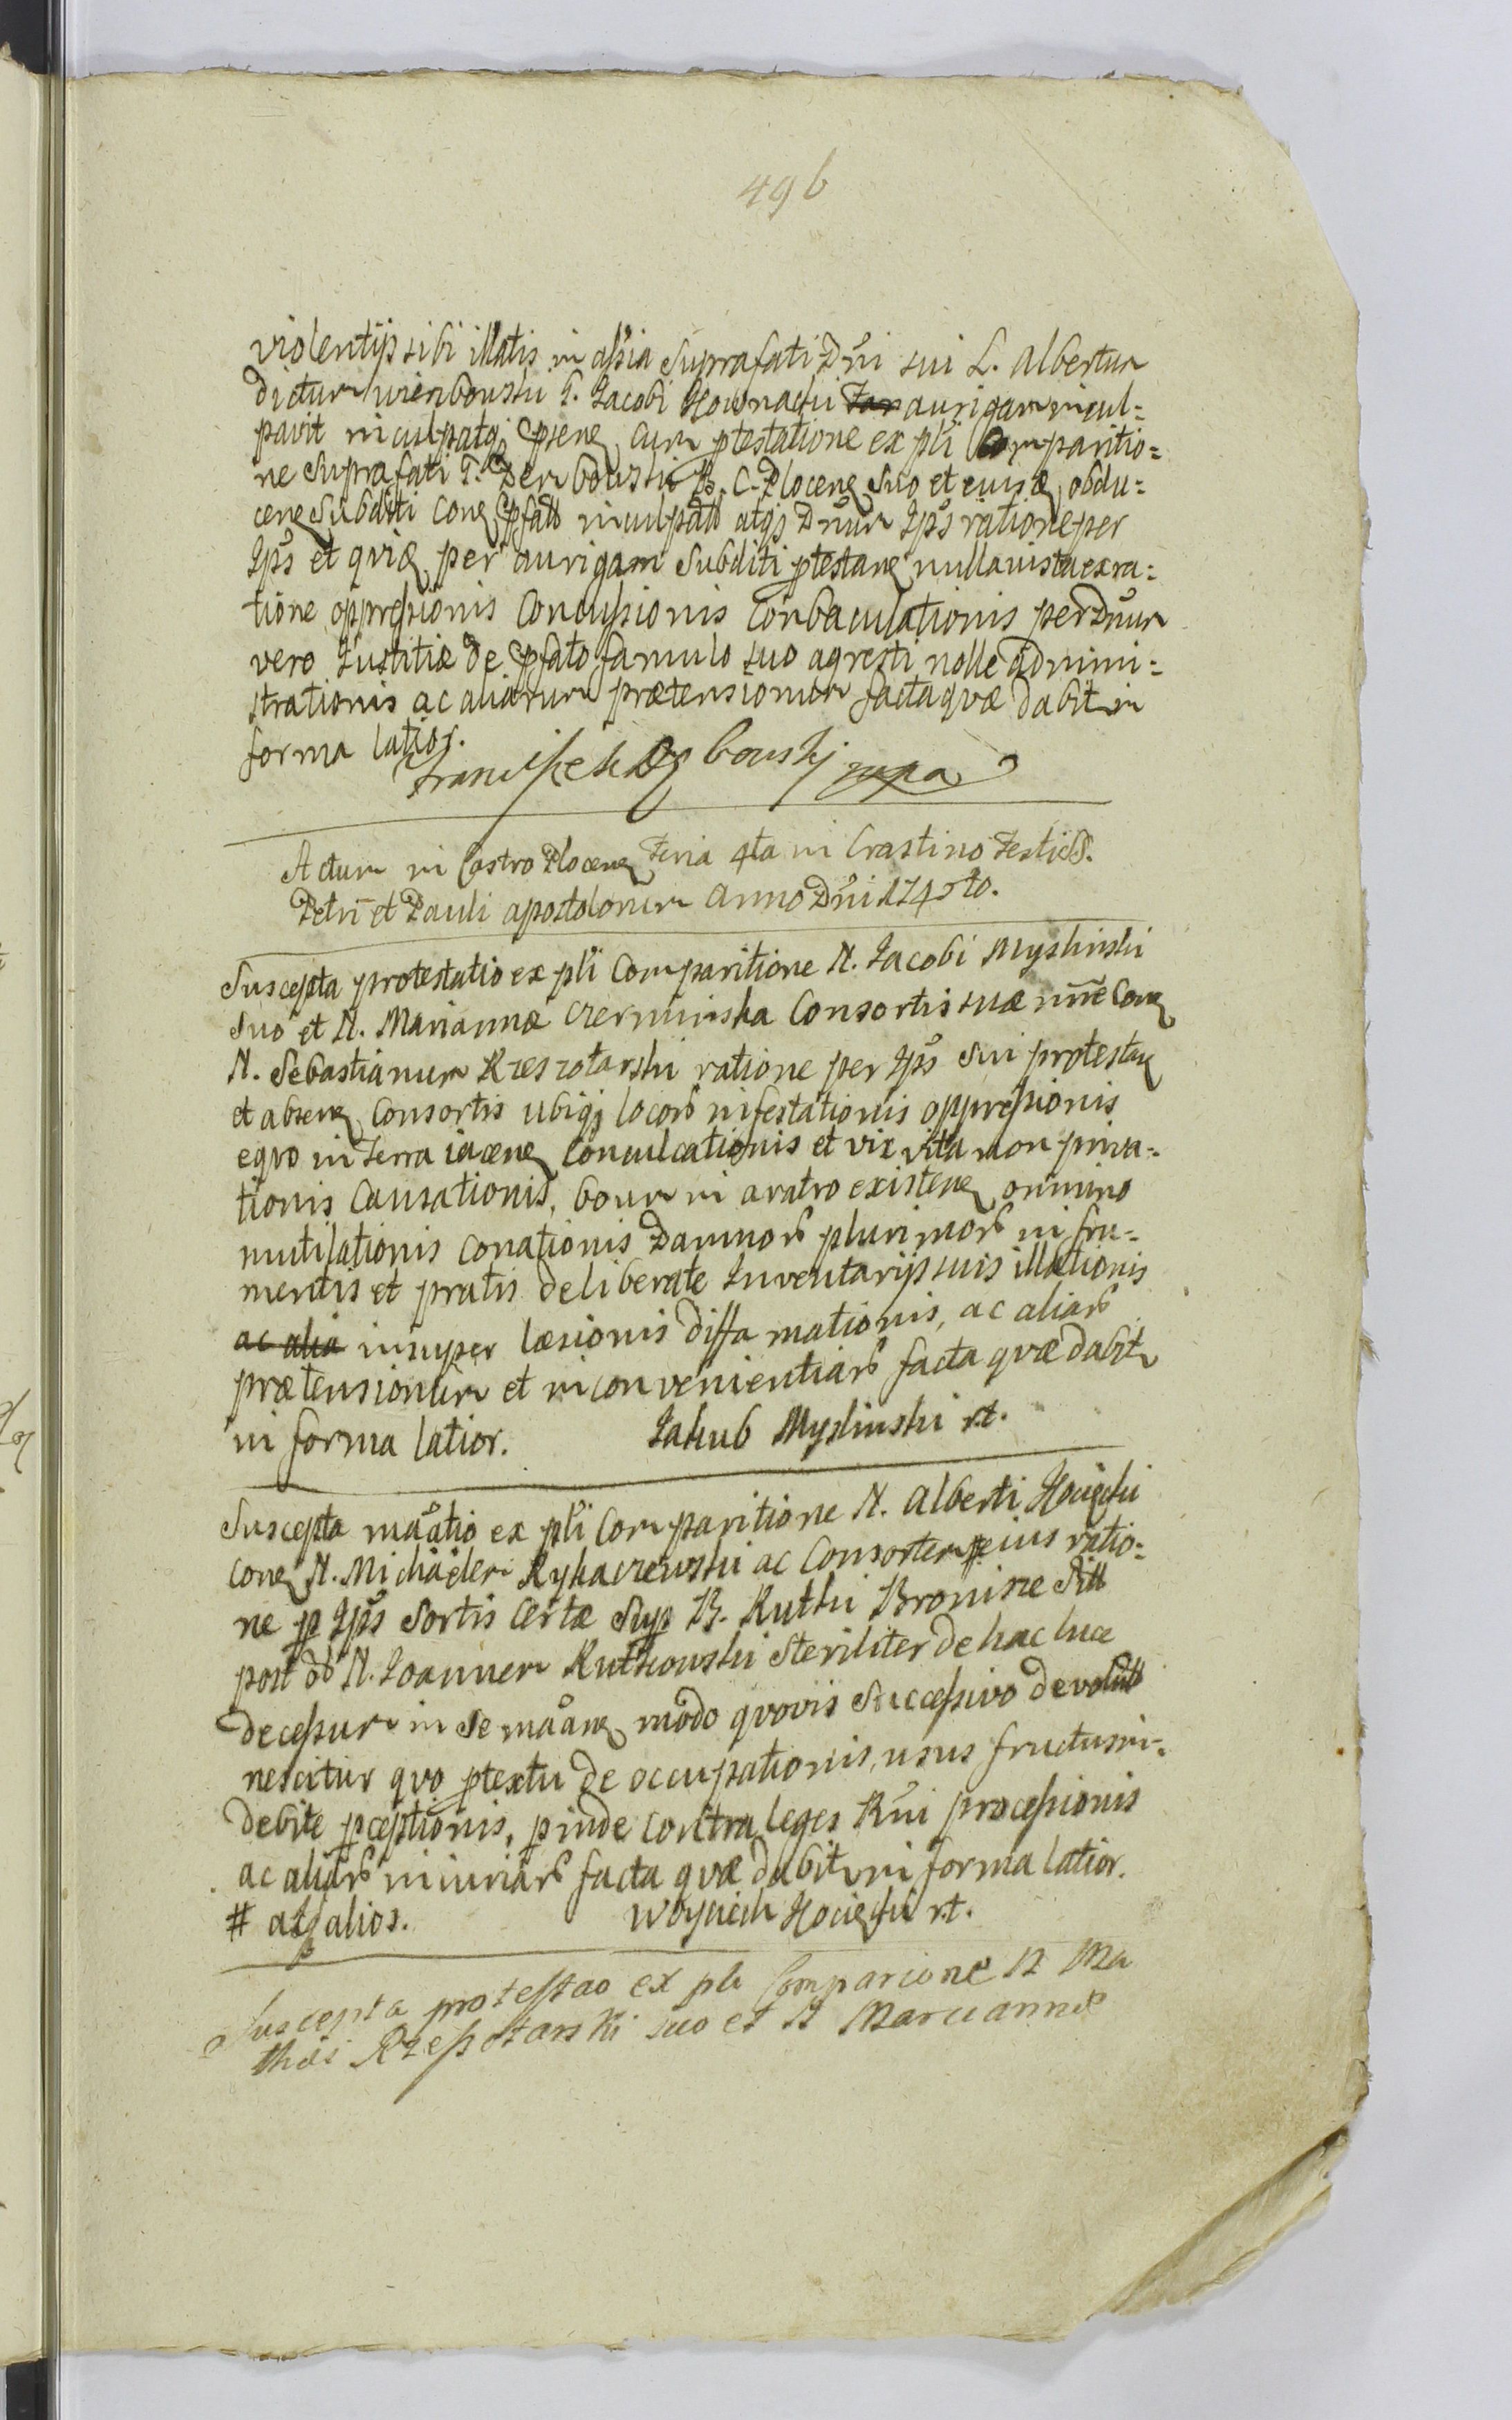 496
violentijs sibi illatis in assia suprafati Dni sui L. Albertum
dictum wierzbowski G. Jacobi Hownacki aurigam incul=
pavit inculpatq; psens cum ptestatione ex pli Comparitio=
ne Suprafati G. B. C. Plocens Suo et eius obdu=
cens Subditi Cons pfatt inculpatt atq; Dnum Ips ratione per
Ips et quia per aurigam Subditi ptestans nulla iusta ex ra=
tione oppressionis Concussionis Conbaculationis per Dnum
vero Iustitiæ de pfato famulo suo agresti nolle admini=
strationis ac aliarum prætensionum facta quæ dabitur in
forma latior.
Actum in Castro Plocens Feria 4ta in Crastino Festi S.
Petri et Pauli apostolorum Anno Dni 174
Suscepta protestatio ex pli Comparitione N. Jacobi Myslinski
Suo et N. Mariannæ Czerminska Consortis suæ nnē Cons
N. Sebastianum Rzeszotarski ratione per Ips Sui protestans
et absens Consortis ubiq; locorum infestationis oppressionis
equo in terra iacens Conculcationis et vix vita non priva=
tionis Causationis, bovum in aratro existens omnino
mutilationis conationis Damnorum plurimorum in fru=
mentis et pratis deliberate Inventarijs suis illationis
ac alia insuper læsionis diffamationis, ac aliarum
prætensionum et inconvenientiarum facta quæ dabitur
in forma latior. Jakub Myslinski rt.
Suscepta maātio ex pli Comparitione N. Alberti
Cons N. Michaelem Rykaczewski ac Consortem # eius ratio=
ne p Ips Sortis certæ Sup B. Rutki Bronisze Sitt
post ob N. Joannem Rutkowski Steriliter de hac luce
decessum in se maāns modo quovis Successivo devolutt
nescitur quo ptextu de occupationis, usus fructus in=
debite pceptionis, pinde contra leges Rni processionis
ac aliarum iniuriarum facta quæ dabitur in forma latior.
# atq alios. Woyciech rt.
Suscepta protestao ex pli Comparicione N Ma
thæi Rzeszotarski suo et N Maruannæ